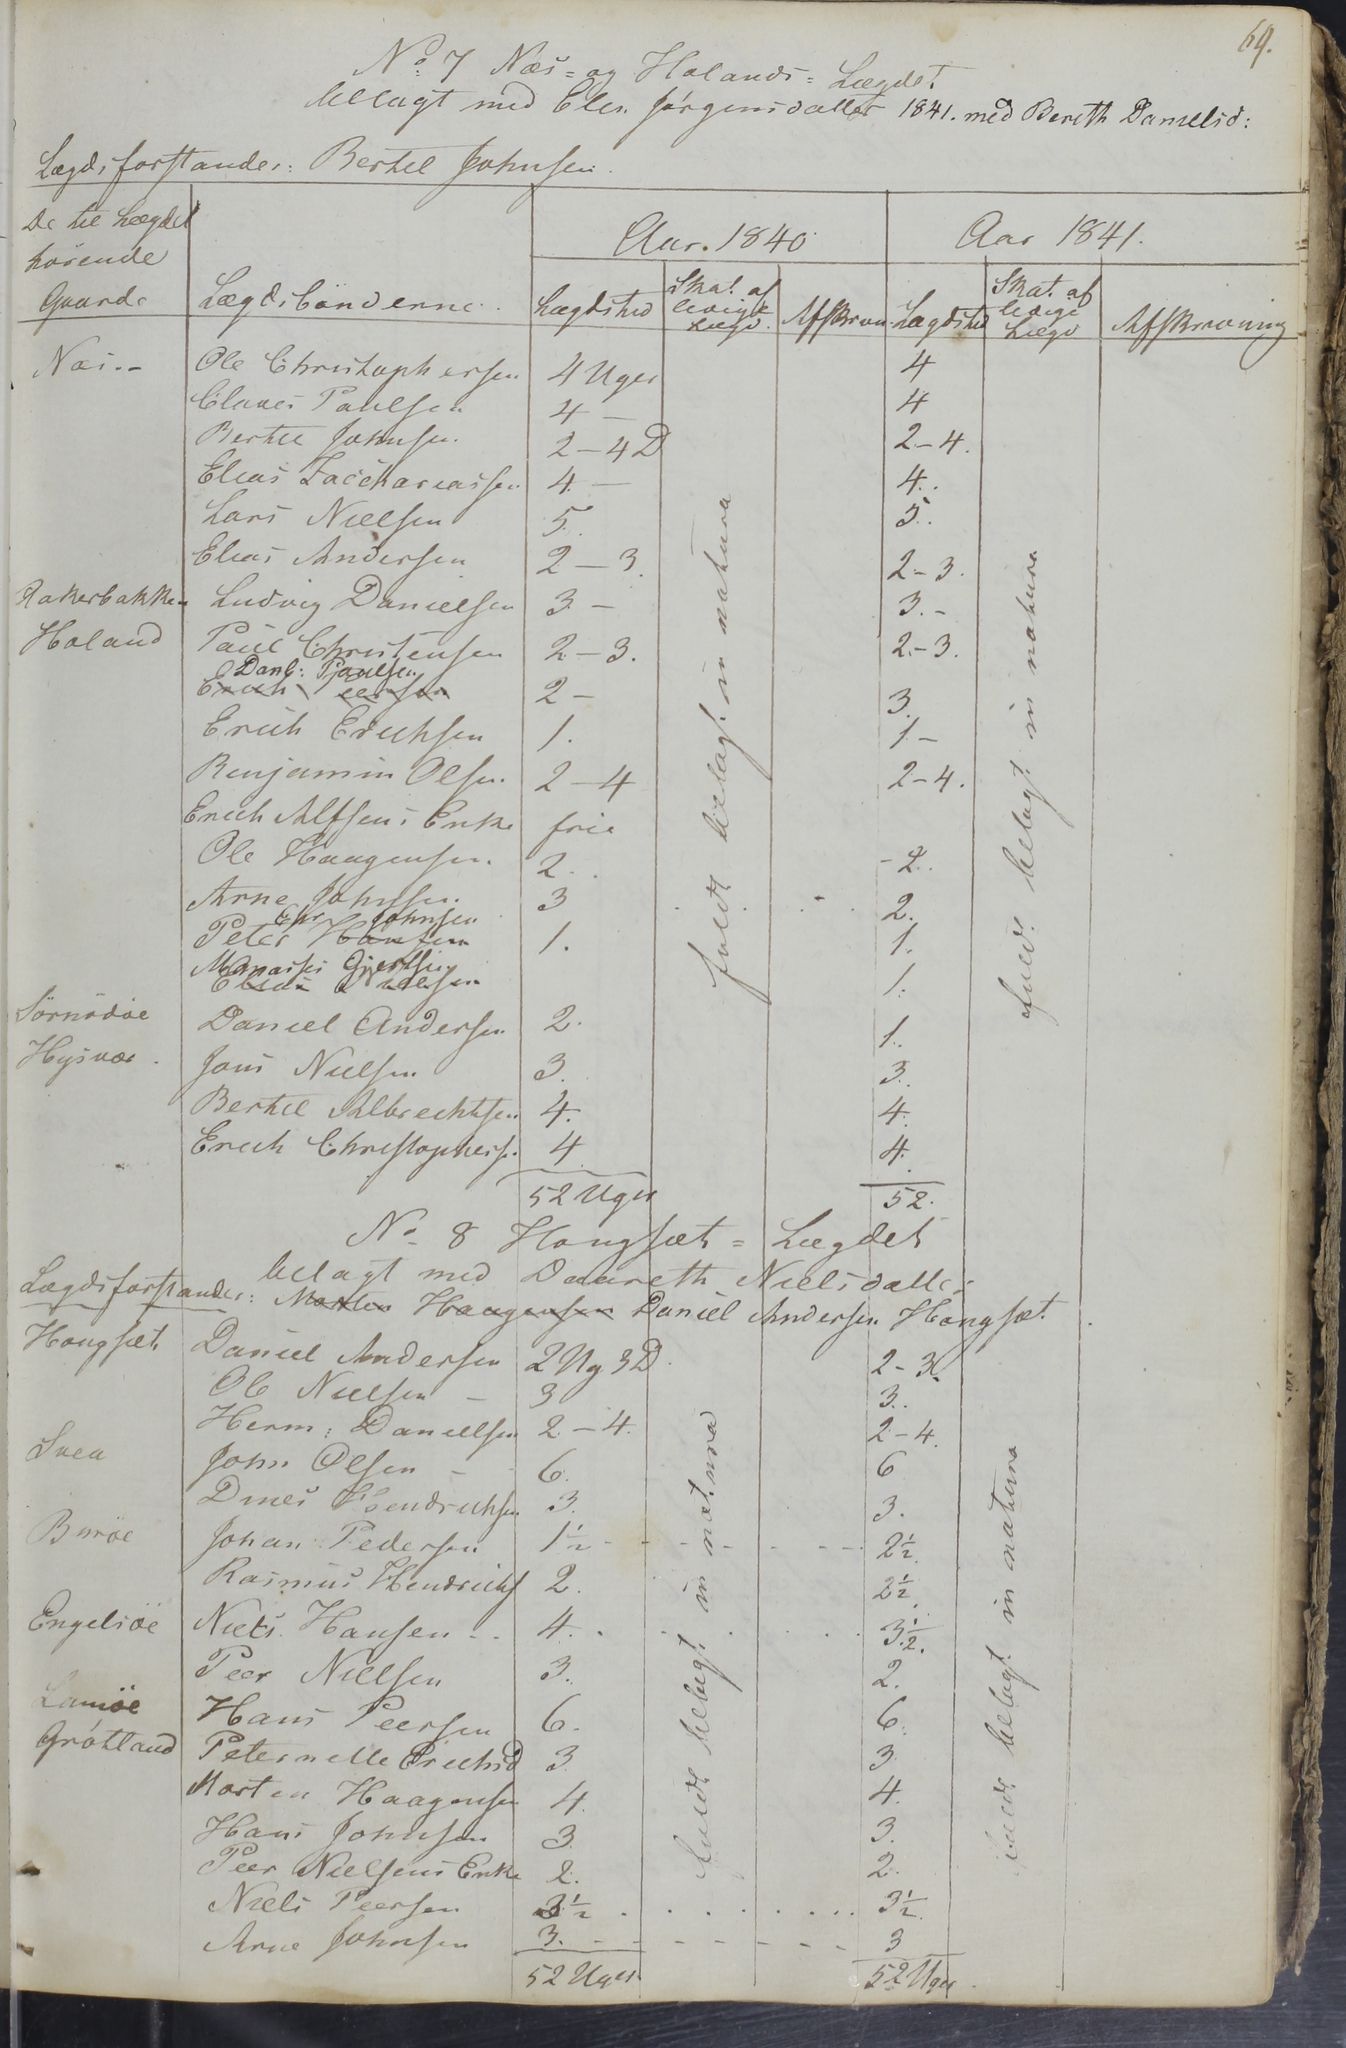 69.
No 7 Næs= og Holands= Lægdet
belagt med Elen Jørgensdatter 1841. med Bereth Danielsd:
Lægdsforstander: Bertel Johnsen.
De til Lægdet hørende Gaarde | Lægdsbönderne. | Aar. 1840 | Aar 1841.
Lægdstid | Skat af ledigt Lægd. | Afskrivn | Lægdstid | Skat af ledigt Lægd | Afskrivning
Næs.- Ole Christophersen 4 Uger 4
Claues Paulsen 4 - 4
Bertel Johnsen 2-4 D 2-4.
Elias Zacchariassen 4 - 4.
Lars Nielsen 5. 5.
Elias Andersen 2-3. 2-3.
Rakerbakken Ludvig Danielsen 3 - 3.-
Holand Paul Christensen 2-3. 2-3.
Danl: Paulsen
Erich Peersen 2 - 3.
Erich Erichsen 1. 1-
Benjamin Olsen 2-4 2-4.
Erich Alfsens Enke frie
Ole Haagensen. 2. -2.
Arne Johnsen. 3 2.
Chr Johnsen
Peter Hansen 1. 1.
Manasses Gjertsen
Elias Nielsen 1.
Sørnødøe Daniel Andersen 2. 1.
Hysvær. Jens Nielsen 3. 3.
Bertel Albrechtsen 4. 4.
Erich Christophers. 4 4.
52 Uger 52.
fuldt belagt in natura
fuldt belagt in natura
No 8 Hongsæt= Lægdet
belagt med Daareth Nielsdatter
Lægdsforstander: Morten Haagensen Daniel Andersen Hongsæt.
Hongsæt Daniel Andersen 2 Ug 3 D. 2-3.
Ole Nielsen - 3 3.
Herm: Danielsen 2-4. 2-4.
Svea John Olsen - 6. 6
Dines Hendrichsen 3. 3.
Buröe Johan Pedersen 1½ 2½
Rasmus Hendrichs 2. 2½.
Engelsöe Niels Hansen - 4. 3½.
Peer Nielsen 3. 2.
Lamöe Hans Peersen 6. 6.
Grøtland Peternelle Erichsd 3 3.
Morten Haagensen 4. 4.
Hans Johnsen 3. 3.
Peer Nielsens Enke 2. 2.
Niels Peersen 3½ 3½.
Arne Johnsen 3. 3
52 Uger 52 Uger
fuldt belagt in natura
fuldt belagt in natura